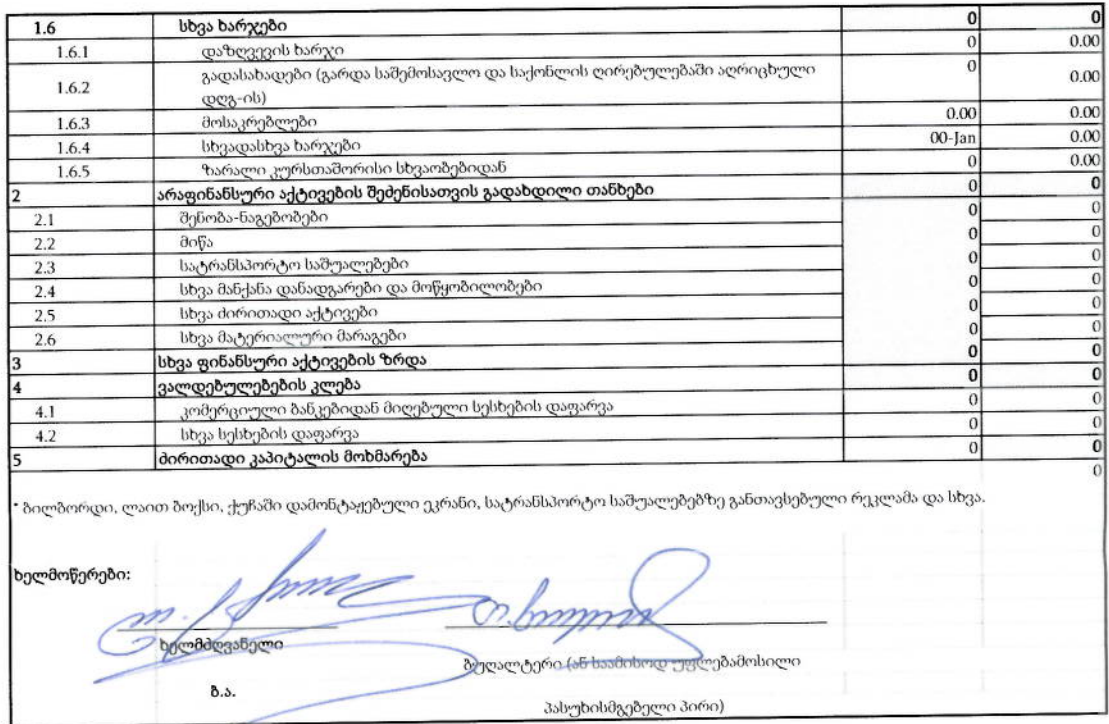 1.6 სხვა ხარჯები 0 0
1.6.1 დაზღვევის ხარჯი 0 0.00
1.6.2 გადასახადები (გარდა საშემოსავლო და საქონლის ღირებულებაში აღრიცხული 0 0.00
დღგ-ის)
1.6.3 მოსაკრებლები 0.00 0.00
1.6.4 სხვადასხვა ხარჯები 00-Jan 0.00
1.6.5 ზარალი კურსთაშორისი სხვაობებიდან 0 0.00
2 არაფინანსური აქტივების შეძენისათვის გადახდილი თანხები 0 0
2.1 შენობა-ნაგებობები 0 0
2.2 მიწა 0 0
2.3 სატრანსპორტო საშუალებები 0 0
2.4 სხვა მანქანა დანადგარები და მოწყობილობები 0 0
2.5 სხვა ძირითადი აქტივები 0 0
2.6 სხვა მატერიალური მარაგები 0 0
3 სხვა ფინანსური აქტივების ზრდა 0 0
4 ვალდებულებების კლება 0 0
4.1 კომერციული ბანკებიდან მიღებული სესხების დაფარვა 0 0
4.2 სხვა სესხების დაფარვა 0 0
5 ძირითადი კაპიტალის მოხმარება 0 0
0
* ბილბორდი, ლაით ბოქსი, ქუჩაში დამონტაჟებული ეკრანი, სატრანსპორტო საშუალებებზე განთავსებული რეკლამა და სხვა.
ხელმოწერები:
ხელმძღვანელი
ბუღალტერი (ან საამისოდ უფლებამოსილი
ბ.ა.
პასუხისმგებელი პირი)